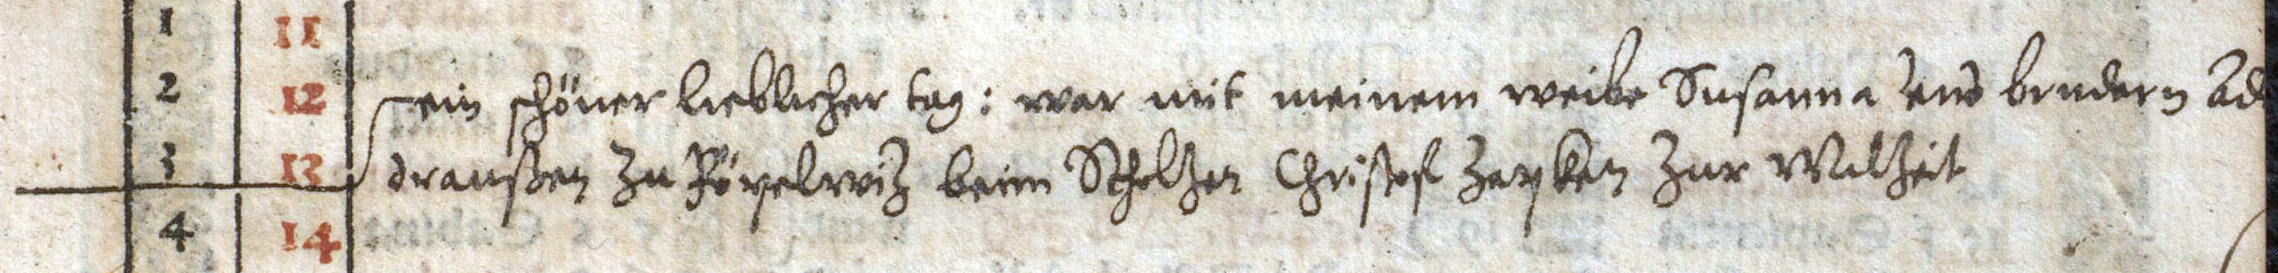 1 11
2 12 ein schöner lieblicher tag: war mit meinem weibe Susanna und brudern Ad
3 13 draußen zu Pöpelwiz beim Scholzen Christof Zapken zur Malzeit
4 14